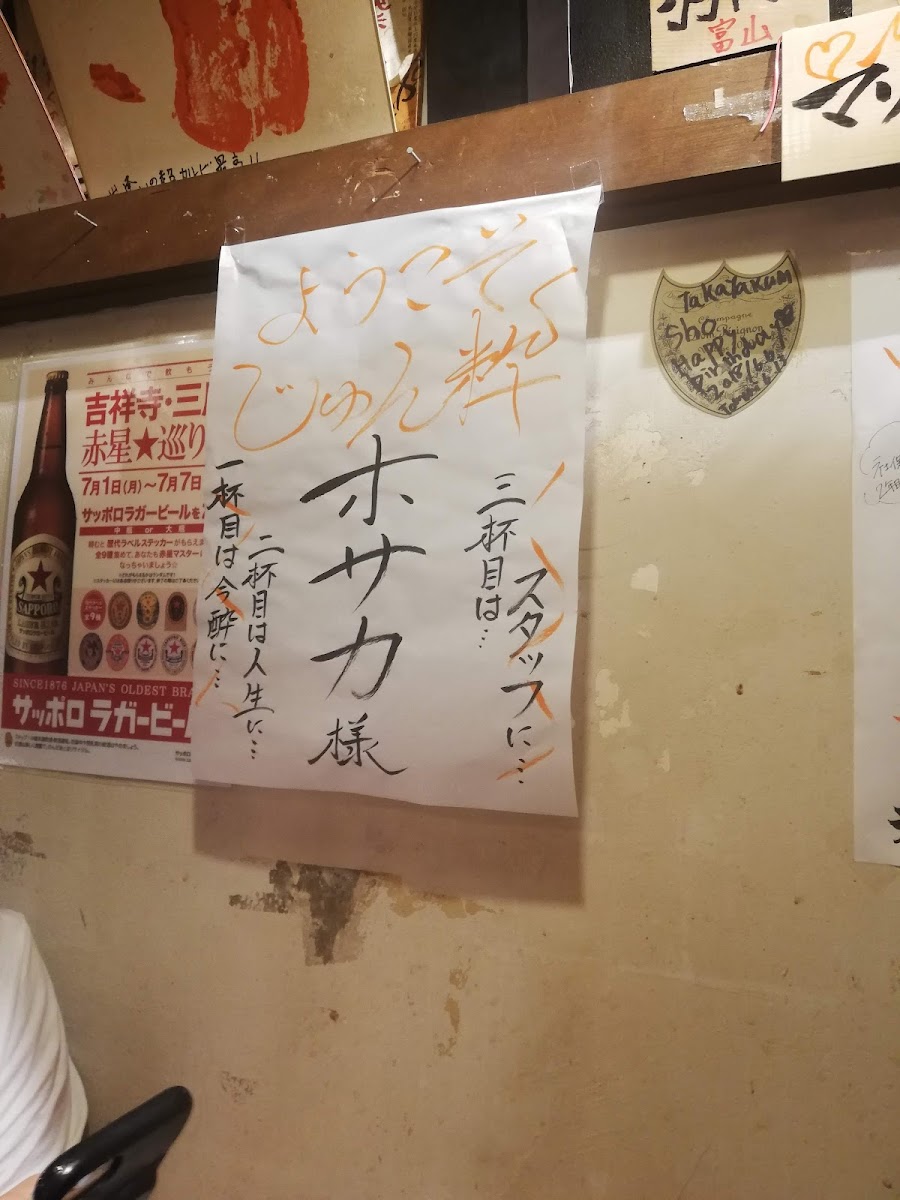 富山
ようこそ
じゅん粋
ホサカ様
三杯目は…
スタッフに…
一杯目は今酔に…
二杯目は人生に…
みんなで飲も
吉祥寺・三
赤星★巡り
7月1日(月)〜7月7日
サッポロラガービールを
中瓶 or 大瓶
飲むと歴代ラベルステッカーがもらえま
全9種集めて、あなたも赤星マスターに
なっちゃいましょう☆
全9種
SAPPORO
SINCE1876 JAPAN'S OLDEST BRA
サッポロラガービー
Takatakum
Champagne
Sho
Happy
Birthday